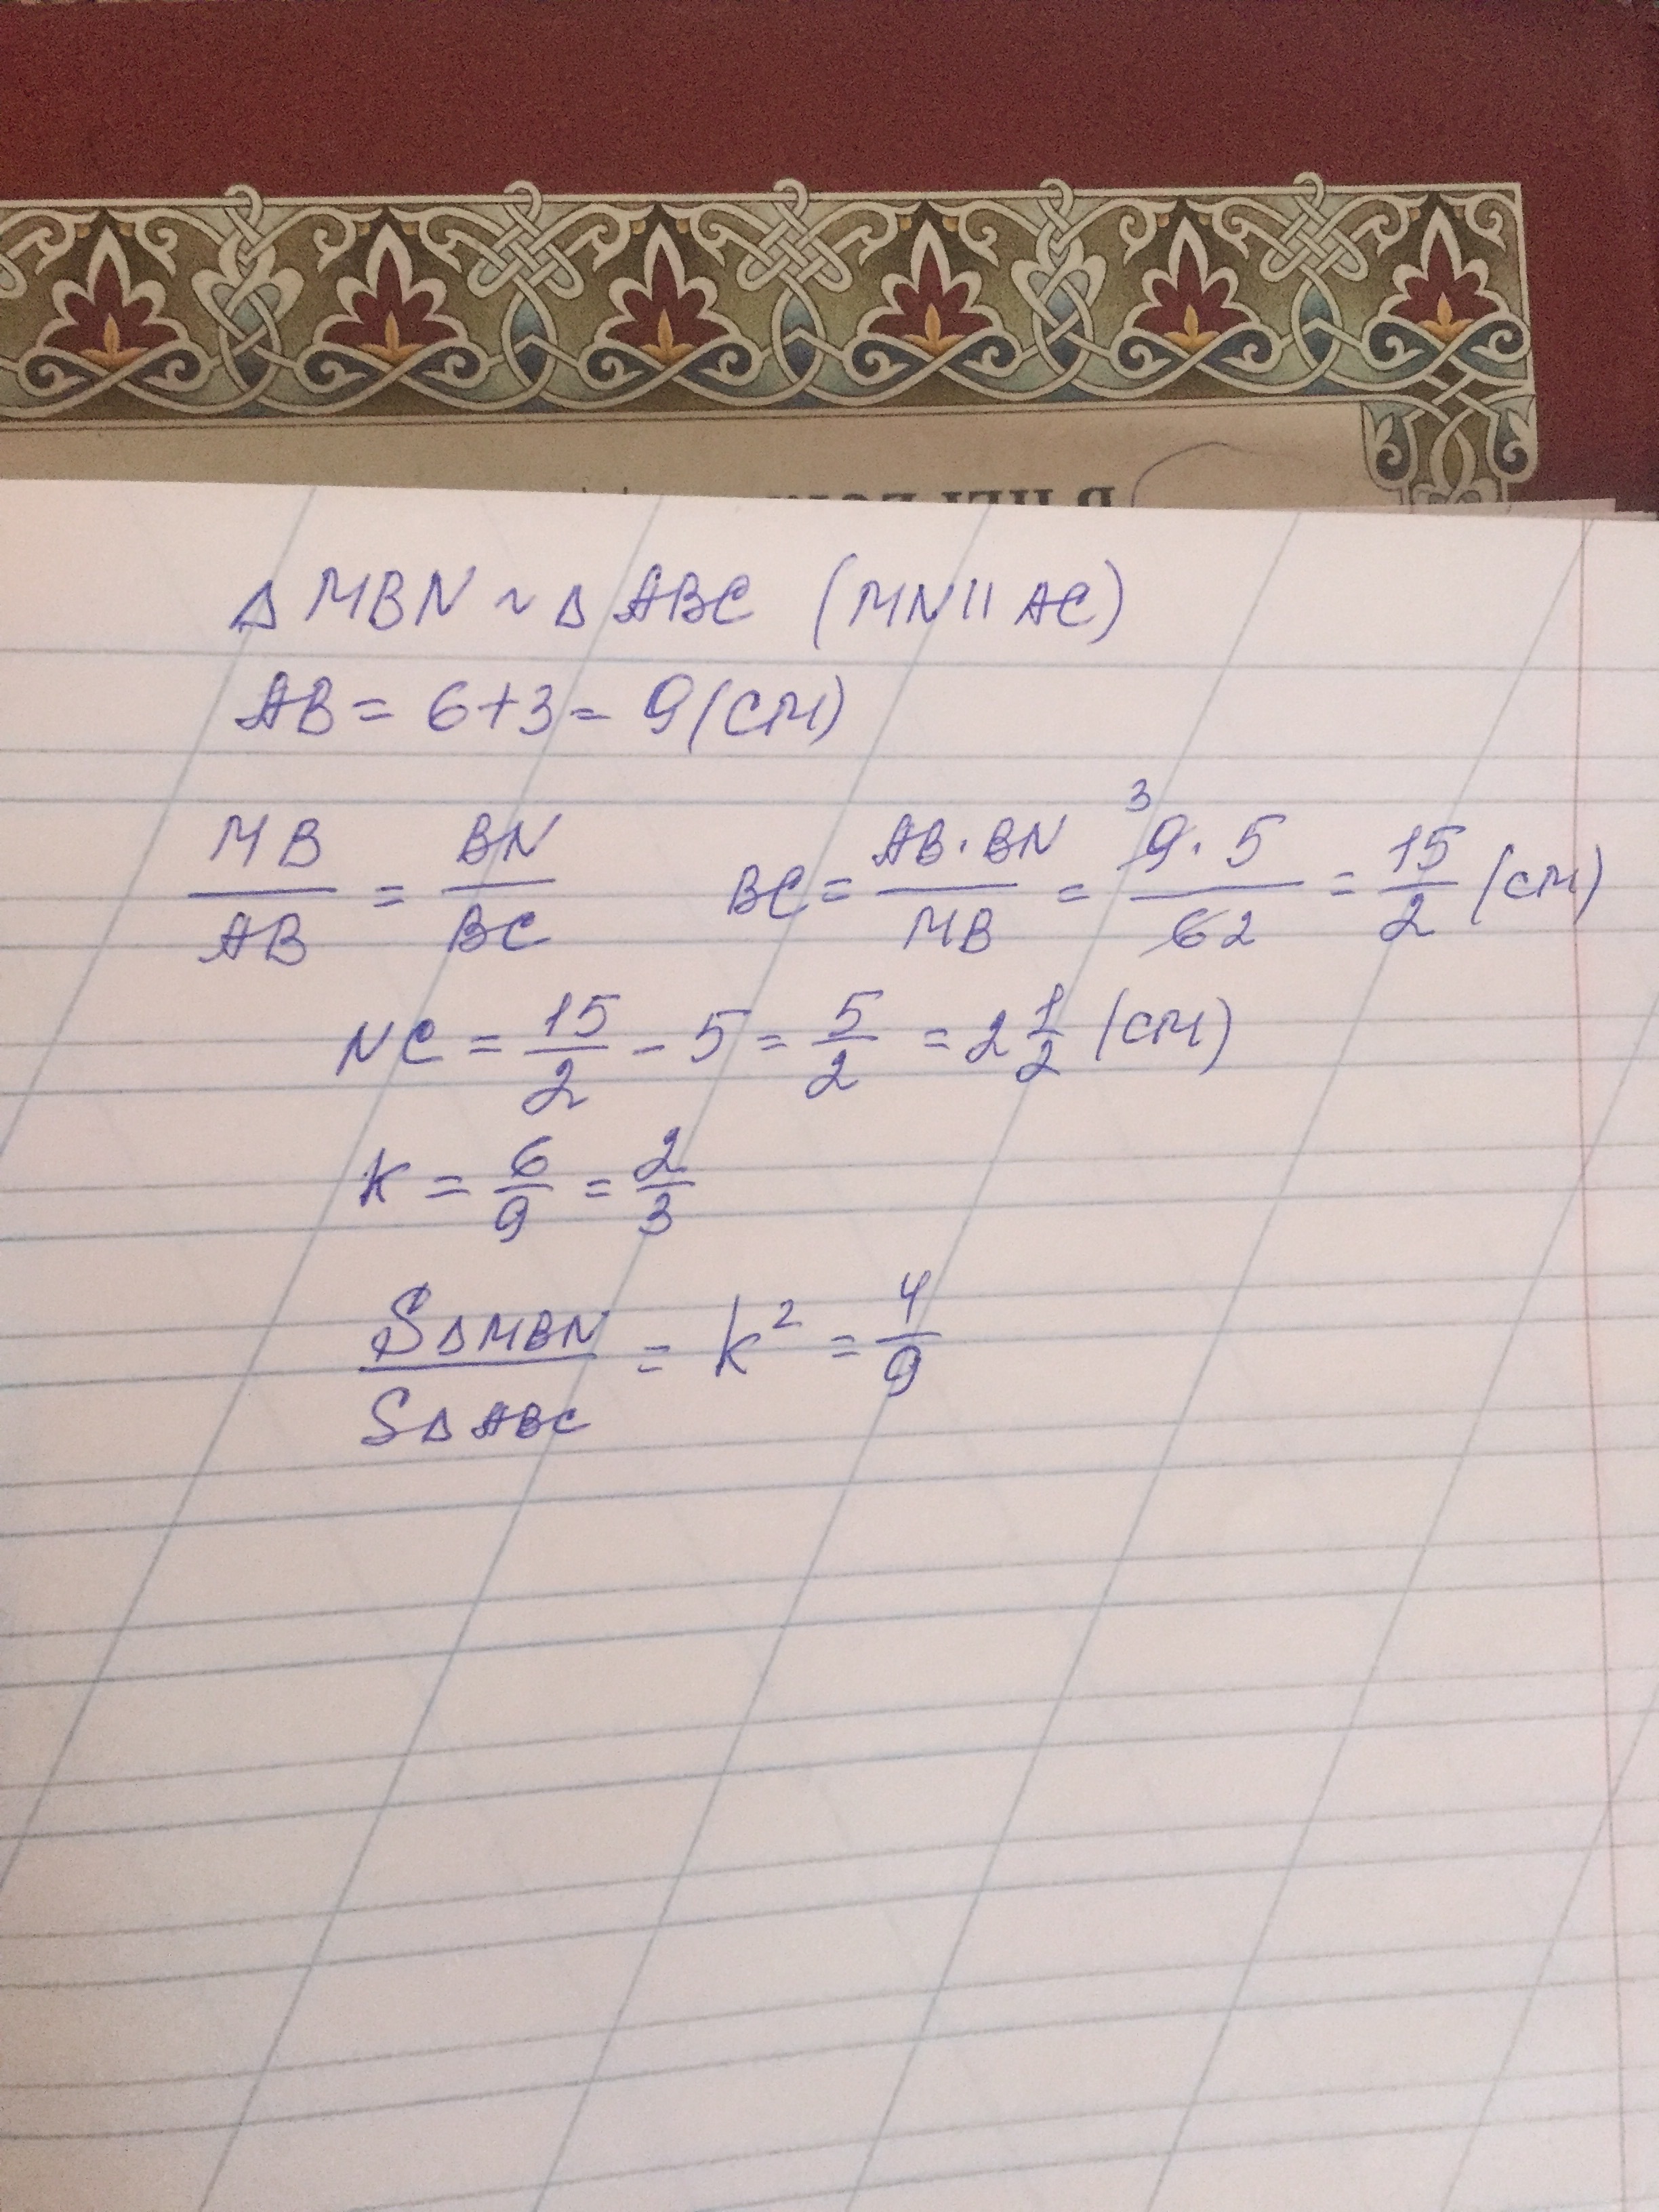 Δ MBN ~ Δ ABC (MN || AC)
AB = 6+3 = 9 (см)
MB/AB = BN/BC BC = AB·BN/MB = 9·5/6 3 2 = 15/2 (см)
NC = 15/2 - 5 = 5/2 = 2 1/2 (см)
K = 6/9 = 2/3
SΔMBN/SΔABC = k² = 4/9